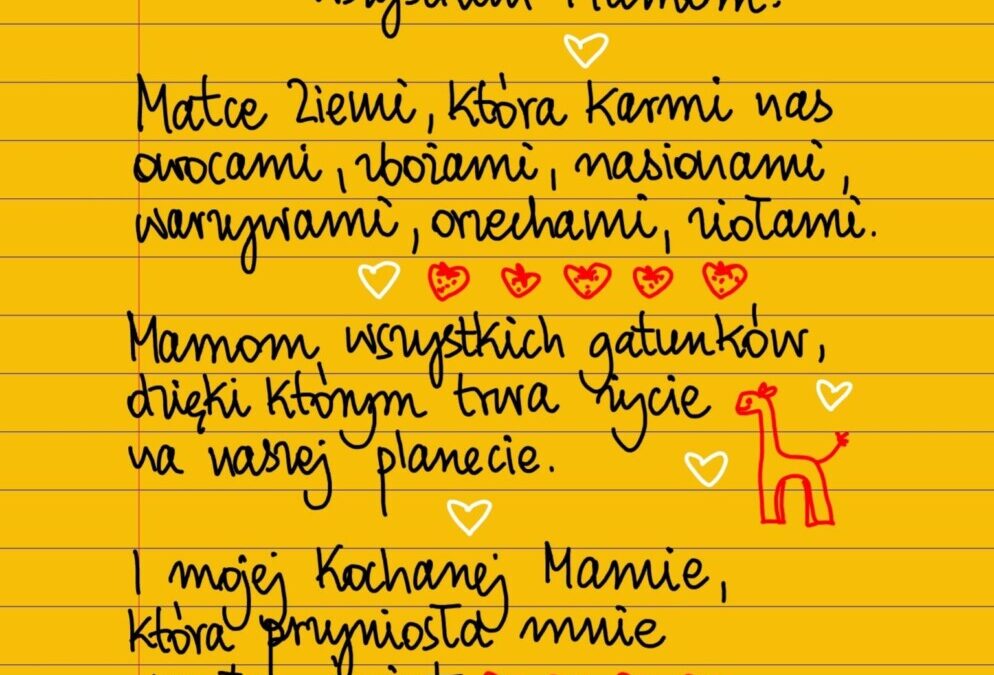 Mamom!
Matce Ziemi, która karmi nas
owocami, zbożami, nasionami,
warzywami, orzechami, ziołami.
Mamom wszystkich gatunków,
dzięki którym trwa życie
na naszej planecie.
I mojej Kochanej Mamie,
która przyniosła mnie